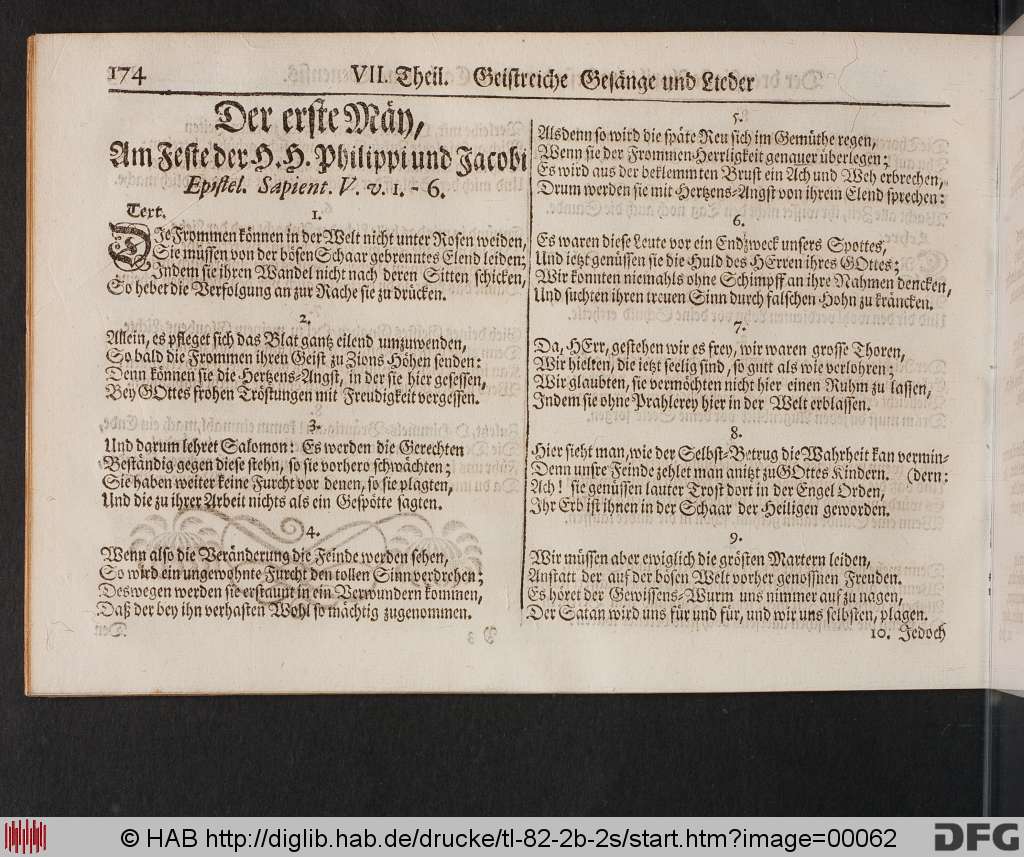 174
VII. Theil. Geistreiche Gesänge und Lieder
Der erste Mäy,
Am Feste der H. H. Philippi und Jacobi
Epistel. Sapient. V. v. 1. - 6.
Text.
1.
DJe Frommen können in der Welt nicht unter Rosen weiden,
Sie müssen von der bösen Schaar gebrenntes Elend leiden;
Indem sie ihren Wandel nicht nach deren Sitten schicken,
So hebet die Verfolgung an zur Rache sie zu drücken.
2.
Allein, es pfleget sich das Blat gantz eilend umzuwenden,
So bald die Frommen ihren Geist zu Zions Höhen senden:
Denn können sie die Hertzens-Angst, in der sie hier gesessen,
Bey GOttes frohen Tröstungen mit Freudigkeit vergessen.
3.
Und darum lehret Salomon: Es werden die Gerechten
Beständig gegen diese stehn, so sie vorhero schwächten;
Sie haben weiter keine Furcht vor denen, so sie plagten,
Und die zu ihrer Arbeit nichts als ein Gespötte sagten.
4.
Wenn also die Veränderung die Feinde werden sehen,
So wird ein ungewohnte Furcht den tollen Sinn verdrehen;
Deswegen werden sie erstaunt in ein Verwundern kommen,
Daß der bey ihn verhasten Wohl so mächtig zugenommen.
5.
Alsdenn so wird die späte Reu sich im Gemüthe regen,
Wenn sie der Frommen-Herrligkeit genauer überlegen;
Es wird aus der beklemmten Brust ein Ach und Weh erbrechen,
Drum werden sie mit Hertzens-Angst von ihrem Elend sprechen:
6.
Es waren diese Leute vor ein Endzweck unsers Spottes,
Und ietzt genüssen sie die Huld des HErren ihres GOttes;
Wir konnten niemahls ohne Schimpff an ihre Nahmen dencken,
Und suchten ihren treuen Sinn durch falschen Hohn zu kräncken.
7.
Da, HErr, gestehen wir es frey, wir waren grosse Thoren,
Wir hielten, die ietzt seelig sind, so gutt als wie verlohren;
Wir glaubten, sie vermöchten nicht hier einen Ruhm zu lassen,
Indem sie ohne Prahlerey hier in der Welt erblassen.
8.
Hier sieht man, wie der Selbst-Betrug die Wahrheit kan vermin-
Denn unsre Feinde zehlet man anitzt zu GOttes Kindern. (dern:
Ach! sie genüssen lauter Trost dort in der Engel Orden,
Ihr Erb ist ihnen in der Schaar der Heiligen geworden.
9.
Wir müssen aber ewiglich die grösten Martern leiden,
Anstatt der auf der bösen Welt vorher genossnen Freuden.
Es höret der Gewissens-Wurm uns nimmer auf zu nagen,
Der Satan wird uns für und für, und wir uns selbsten, plagen.
10. Jedoch
© HAB http://diglib.hab.de/drucke/tl-82-2b-2s/start.htm?image=00062
DFG